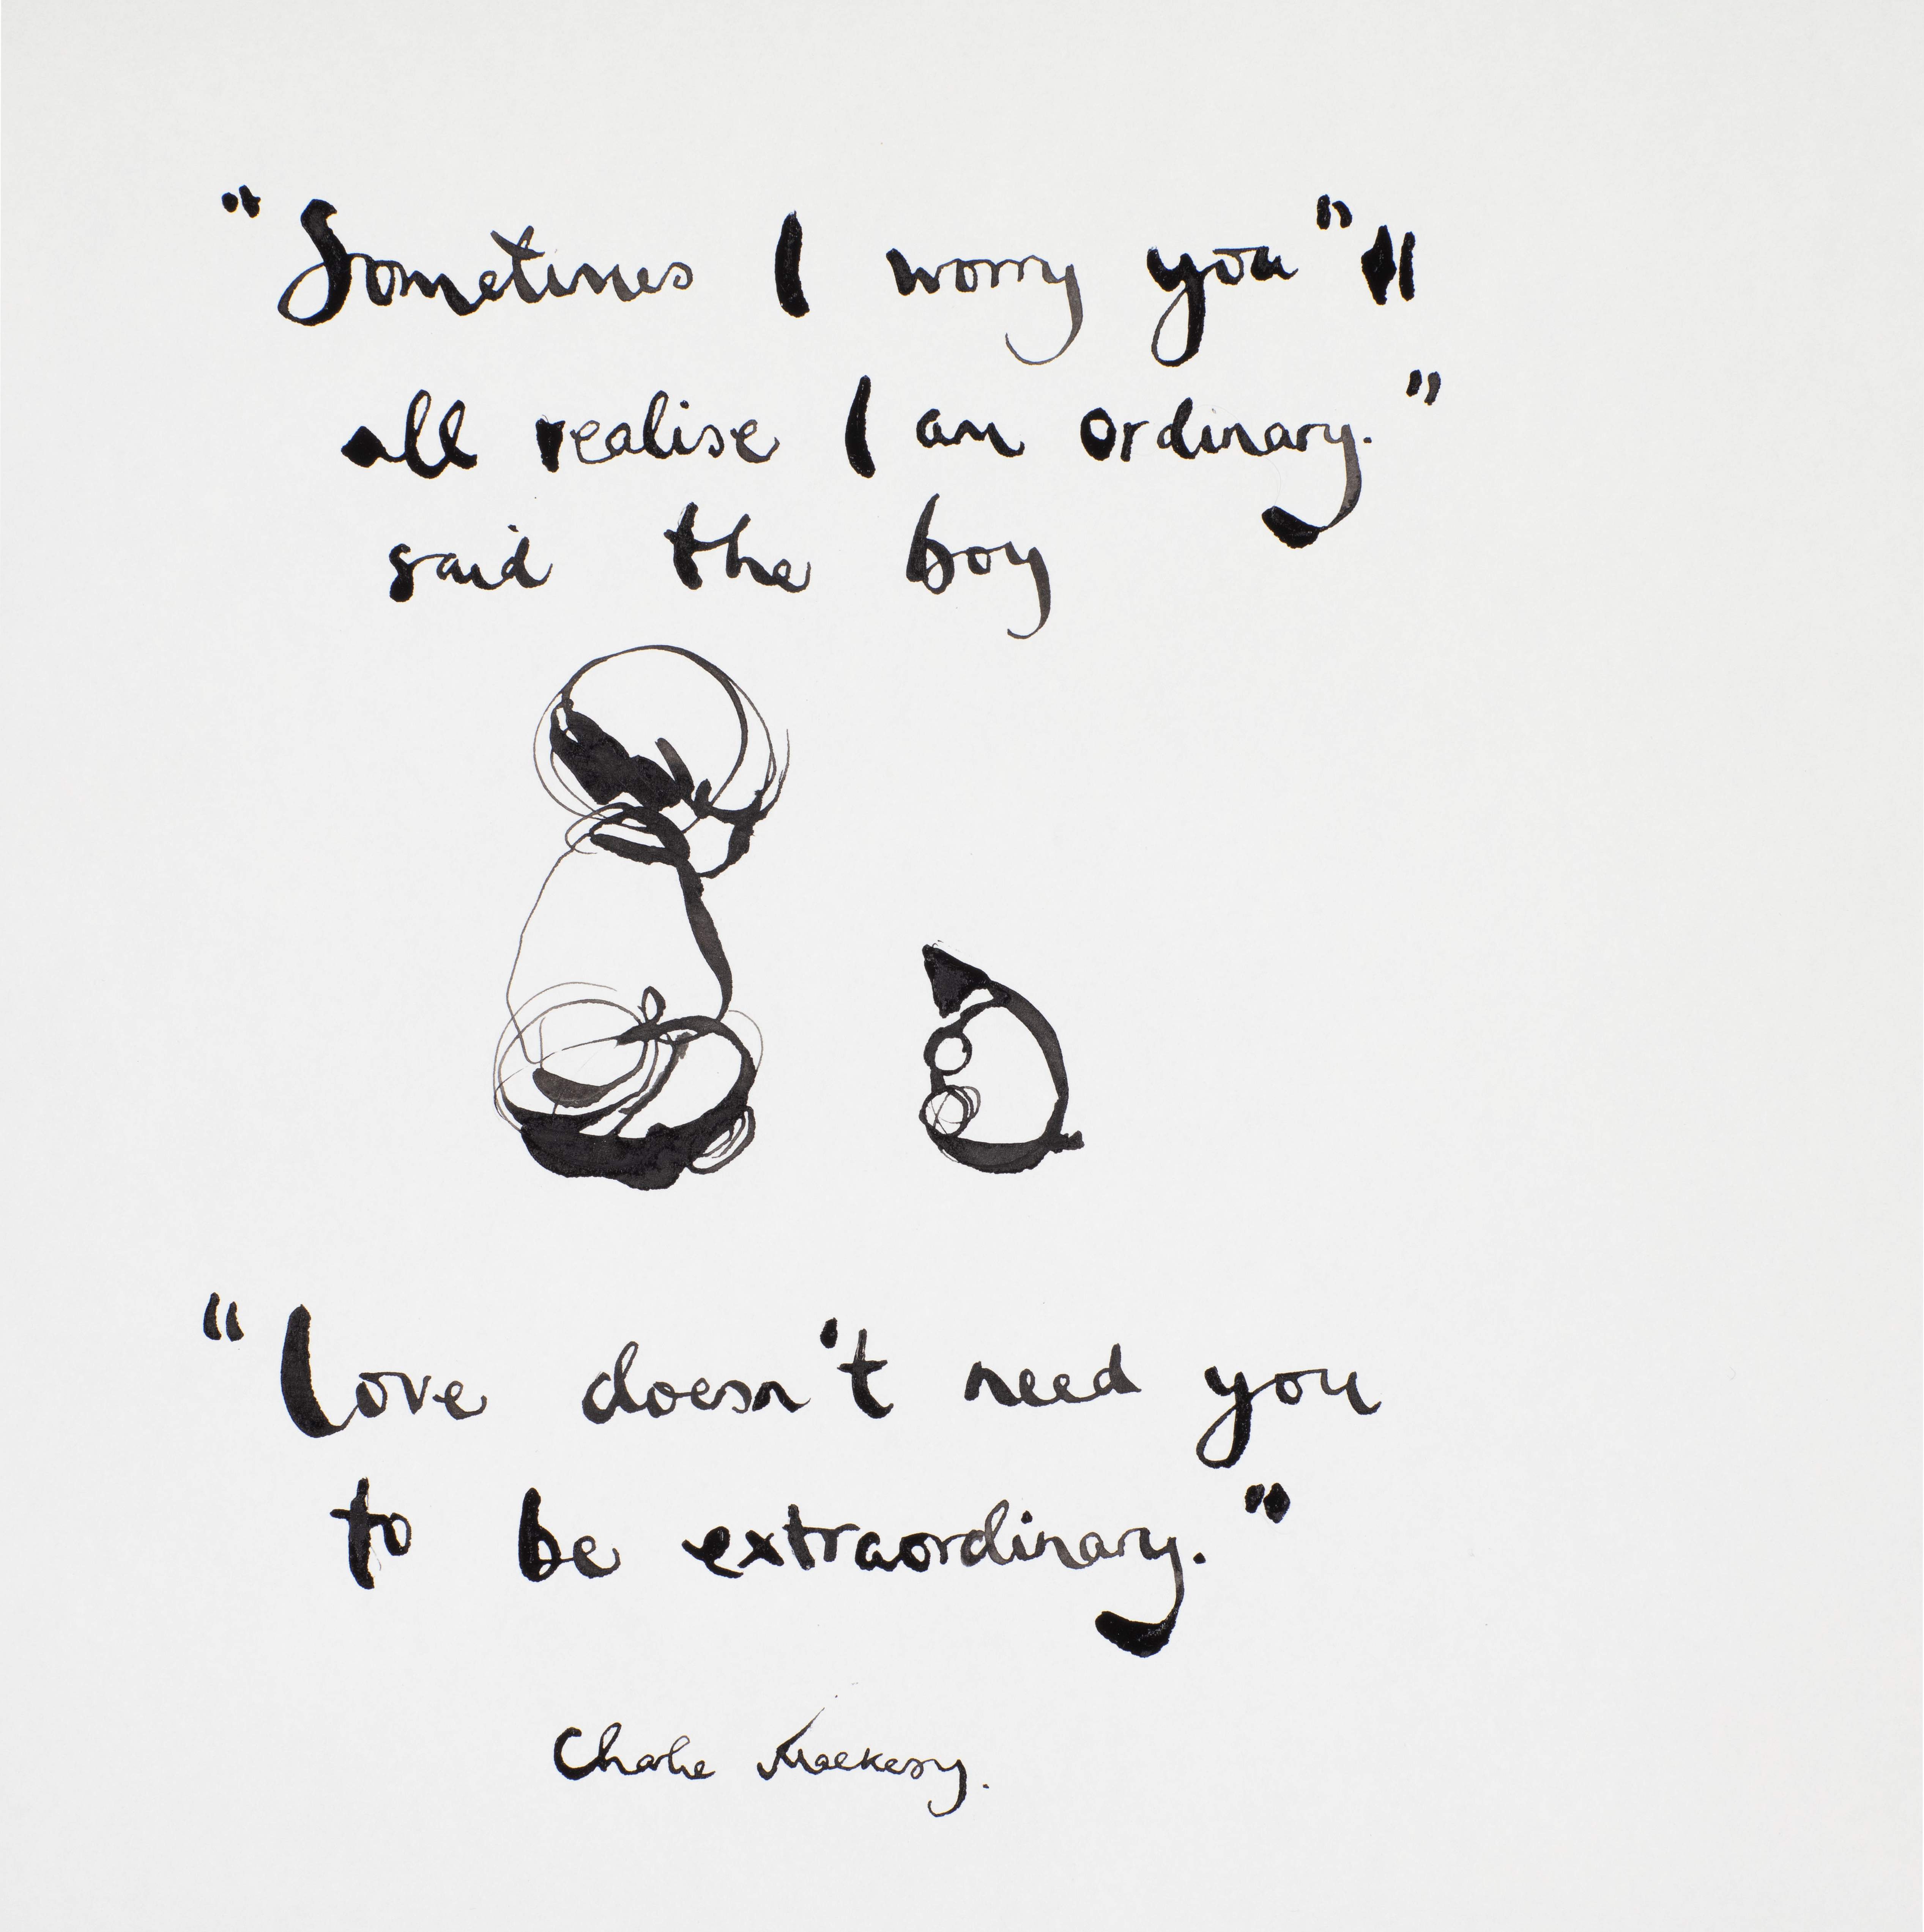 "Sometimes I worry you"
all realise I am ordinary."
said the boy
"Love doesn't need you
to be extraordinary."
Charlie Mackesy.